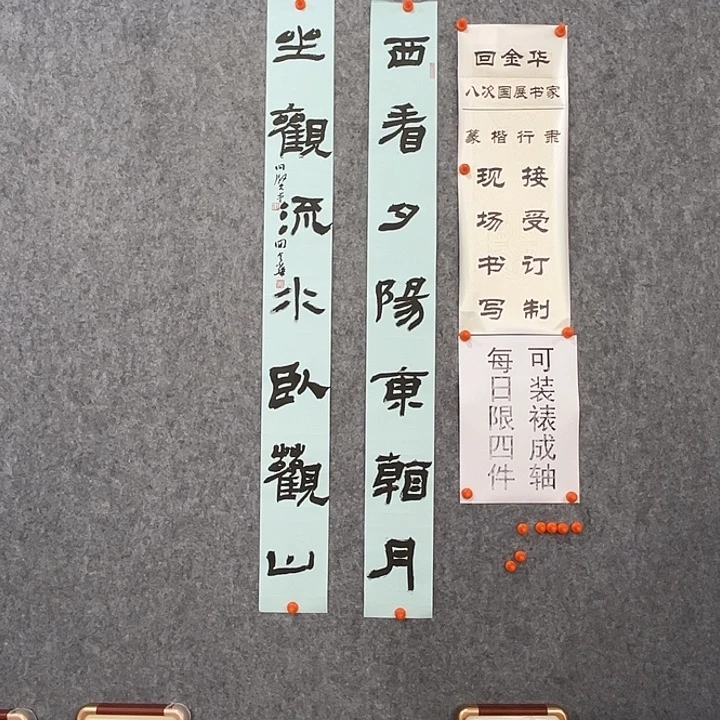 回金华
八次国展书家
篆楷行隶
接受订制
现场书写
可装裱成轴
每日限四件
西看夕陽東朝月
坐觀流水臥觀山